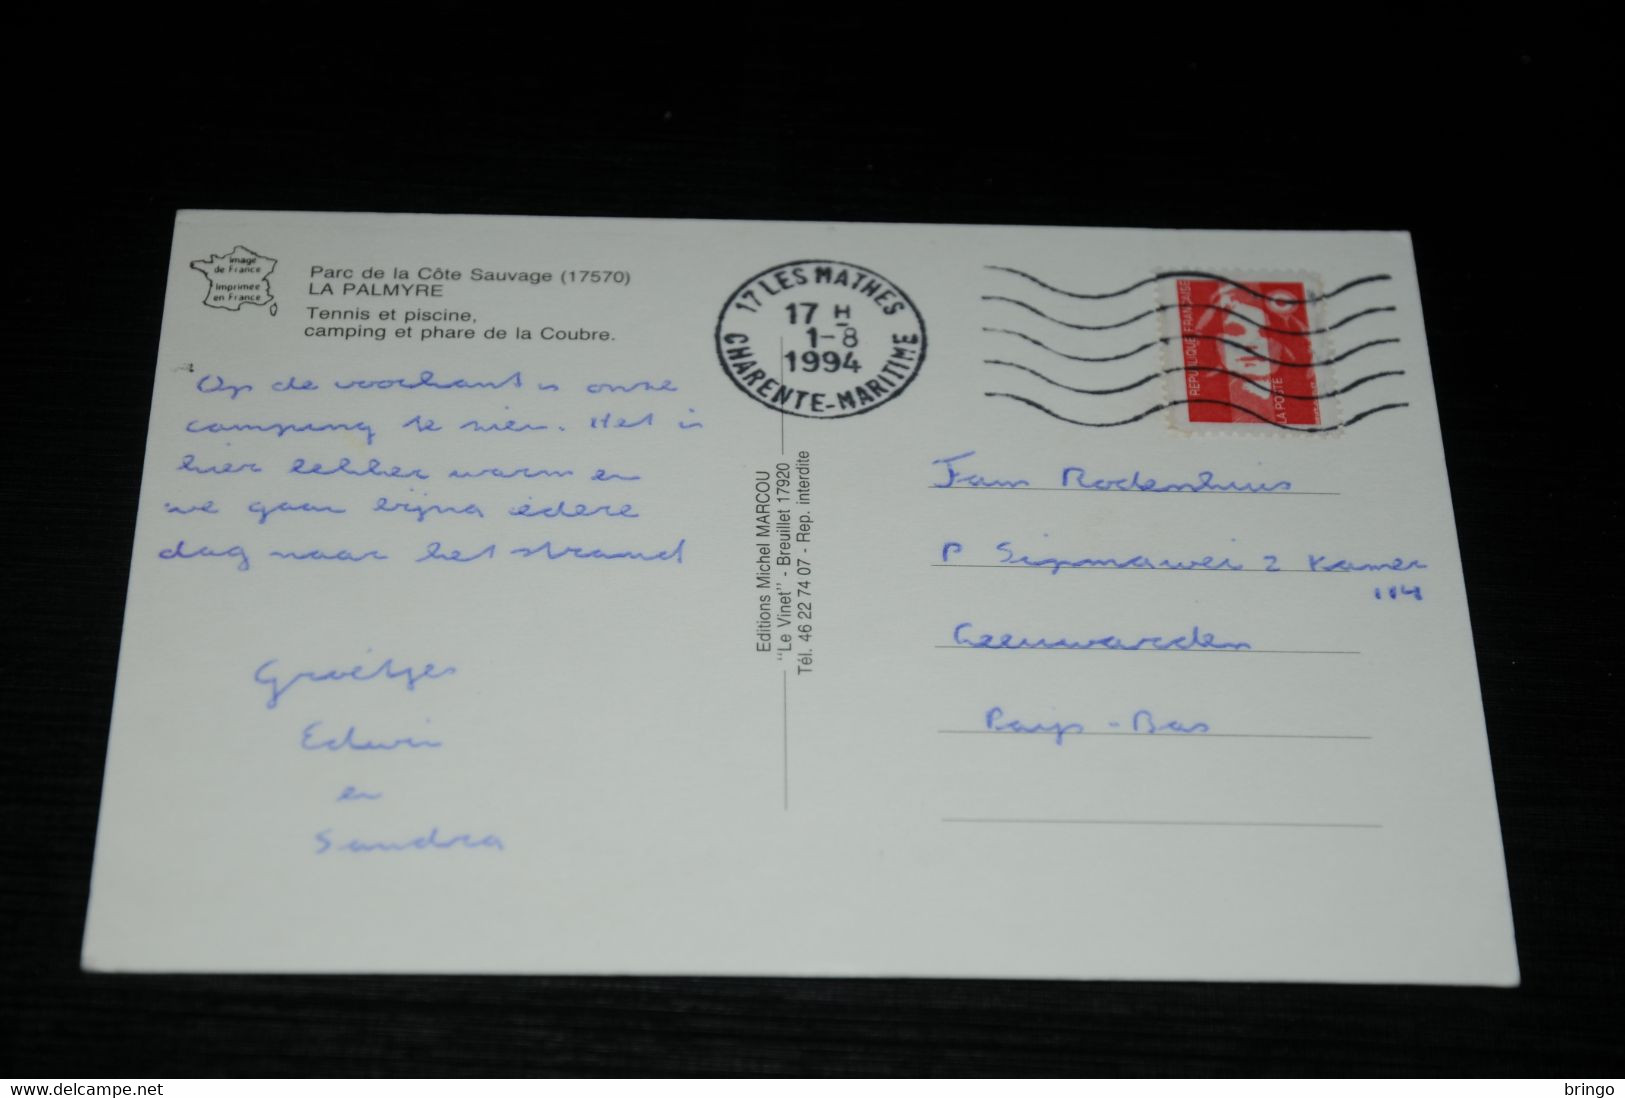 image
de France
Imprimée
en France
Parc de la Côte Sauvage (17570)
LA PALMYRE
Tennis et piscine,
camping et phare de la Coubre.
Op de voorkant is onze
camping te zien. Het is
hier lekker warm en
we gaan bijna iedere
dag naar het strand
Groetjes
Edwin
en
Sandra
Editions Michel MARCOU
"Le Vinet" - Breuillet 17920
Tél. 46 22 74 07 - Rep. interdite
17 LES MATHES
17 H
1-8
1994
CHARENTE-MARITIME
REPUBLIQUE FRANÇAISE
LA POSTE
Fam Rodenhuis
P Sipmawei 2 Kamer
114
Leeuwarden
Pays-Bas
delcampe.net
bringo